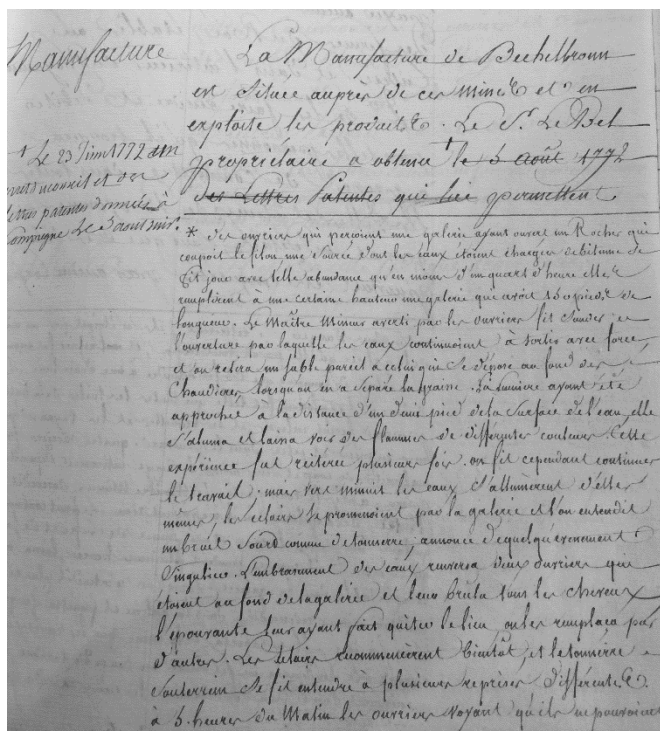 Manufacture
La Manufacture de Bechelbronn
est située aupres de ces mines et en
exploite les produits. Le Sr. Le Bel
propriétaire a obtenu † le 3 Août 1772
des Lettres Patentes qui lui permettent
† Le 23 Juin 1772 un
arret du conseil et des
lettres patentes données à
Compiegne Le 3 aout suivt.
* des ouvriers qui percoient une galerie ayant ouvert un Rocher qui
coupoit le filon une source dont les eaux étoient chargées de bitume se
fit jour avec telle abondance qu'en moins d'un quart d'heure elles
remplirent à une certaine hauteur une galerie que avoit 150 pieds de
longueur. Le Maître Mineur averti par les ouvriers fit sonder
l'ouverture par laquelle les eaux continuoient à sortir avec force,
et on retira un sable pareil à celui qui se dépose au fond des
Chaudieres lorsqu'on en a séparé la graisse. La lumiere ayant été
approchée à la distance d'un demi pied de la surface de l'eau, elle
s'aluma et laissa voir des flammes de différentes couleurs. Cette
expérience fut réitérée plusieurs fois. on fit cependant continuer
le travail; mais vers minuit les eaux s'allumerent d'elles
mêmes, les éclairs se promenoient par la galerie et l'on entendit
un bruit sourd comme de tonnerre, annonce de quelqu'évenement
singulier. L'embrasement des eaux renversa deux ouvriers qui
étoient au fond de la galerie et leur brûla tous les cheveux
l'épouvante leur ayant fait quitter le lieu, on les remplaça par
d'autres. Les éclairs recommencèrent bientôt, et le tonnerre
souterrain se fit entendre à plusieurs reprises différentes.
à 5. heures du Matin les ouvriers voyant qu'ils ne pouvoient